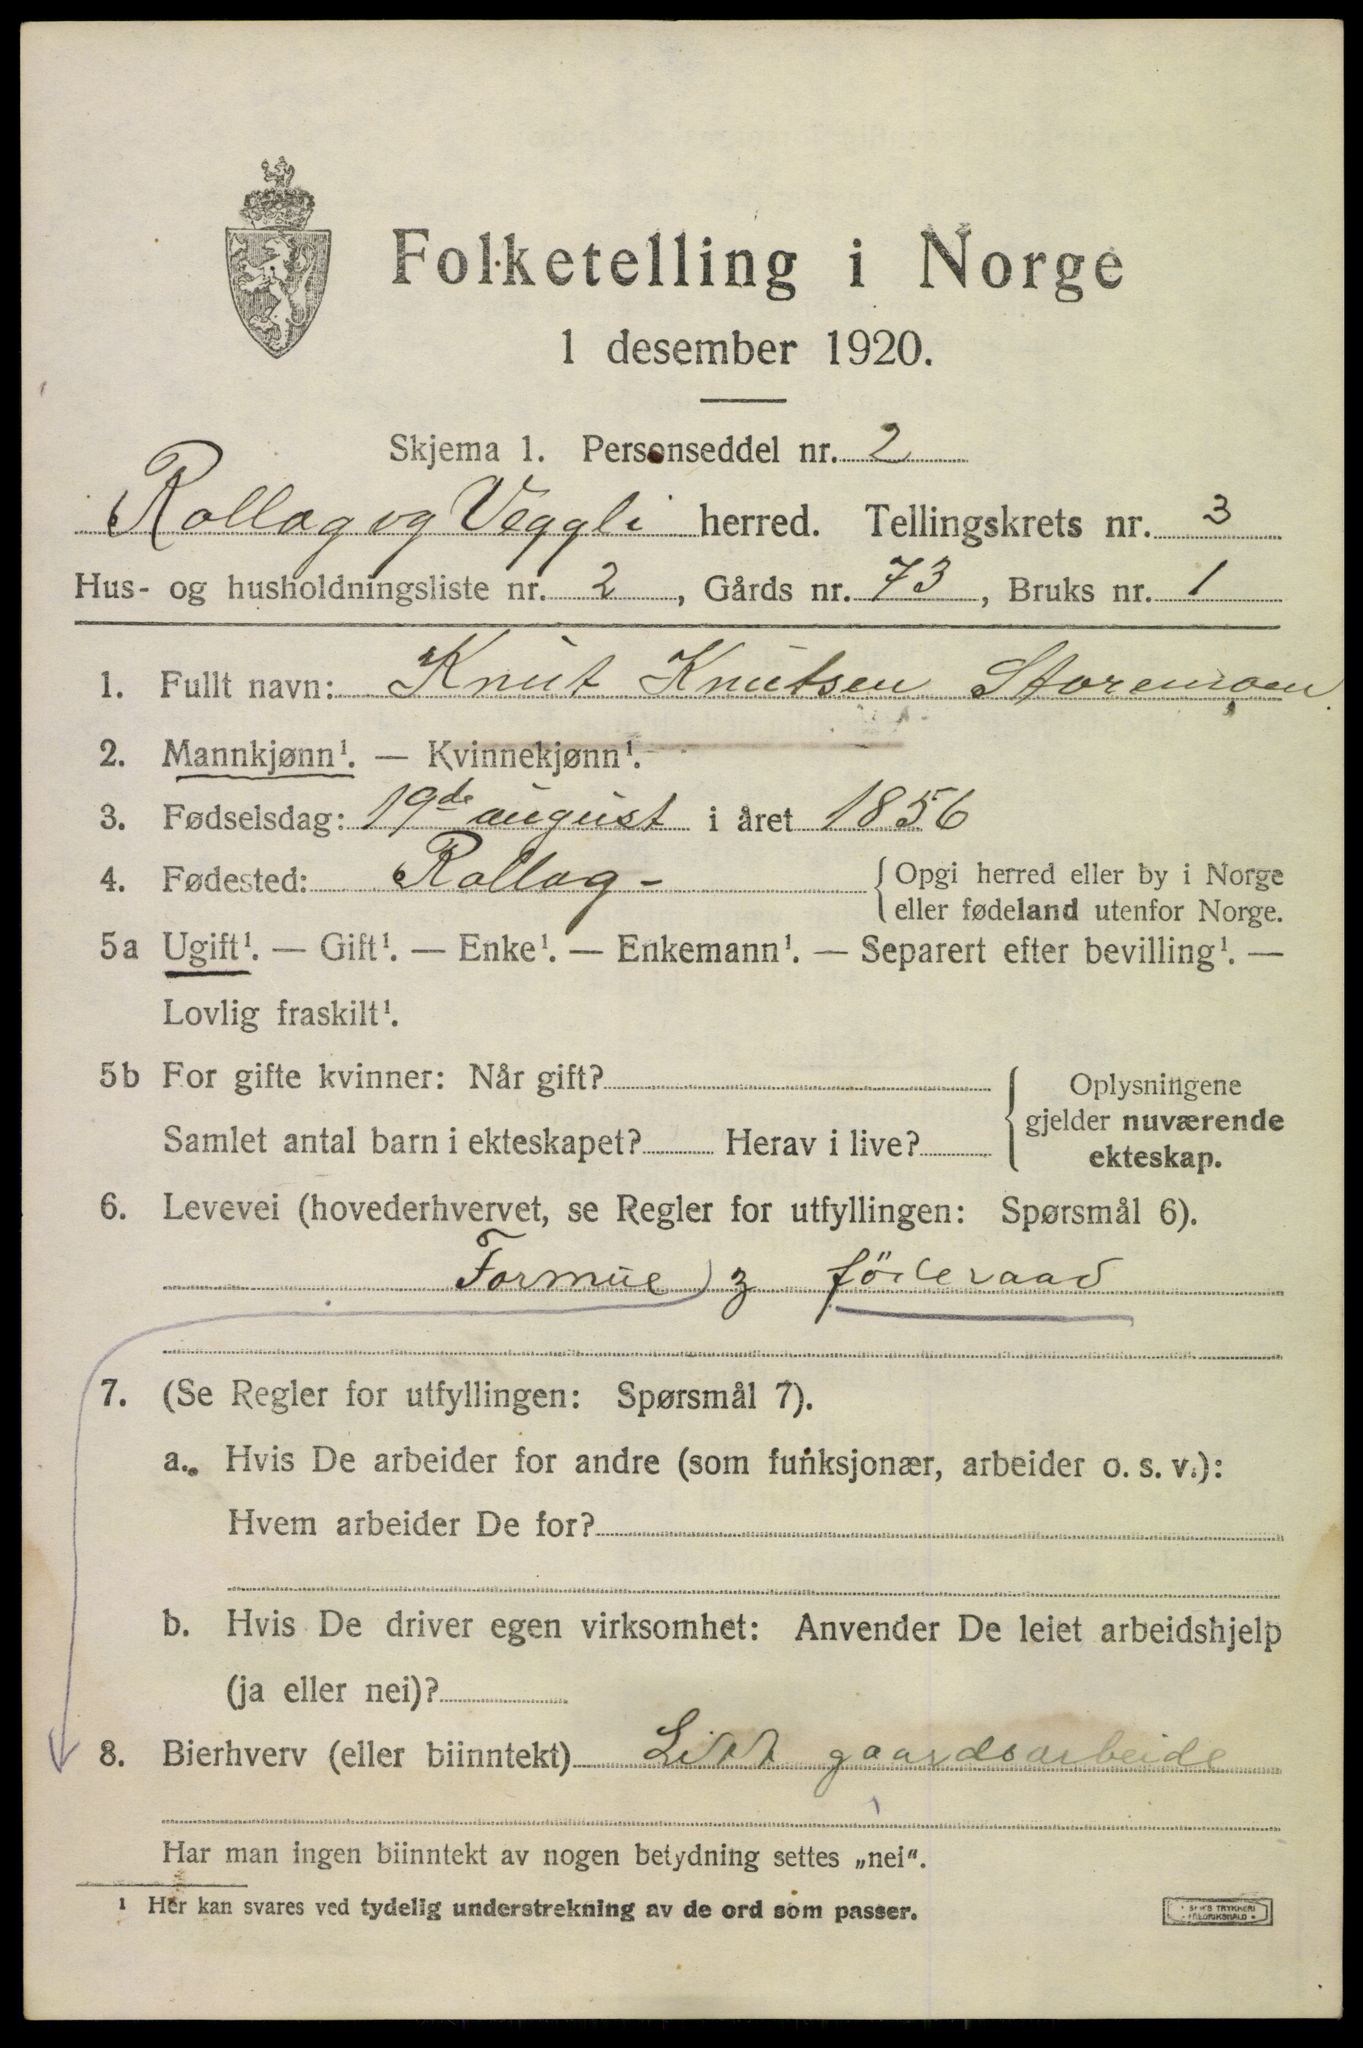 Folketelling i Norge
1 desember 1920.
Skjema 1. Personseddel nr. 2
Rollag og Veggli herred. Tellingskrets nr. 3
Hus- og husholdningsliste nr. 2, Gårds nr. 73, Bruks nr. 1
1. Fullt navn: Knut Knutsen Storemoen
2. Mannkjønn¹. — Kvinnekjønn¹.
3. Fødselsdag: 19de august i året 1856
4. Fødested: Rollag -
{Opgi herred eller by i Norge
eller fødeland utenfor Norge.
5a Ugift¹. — Gift¹. — Enke¹. — Enkemann¹. — Separert efter bevilling¹. —
Lovlig fraskilt¹.
5b For gifte kvinner: Når gift?
Samlet antal barn i ekteskapet? Herav i live?
{Oplysningene
gjelder nuværende
ekteskap.
6. Levevei (hovederhvervet, se Regler for utfyllingen: Spørsmål 6).
Formue föderaad
7. (Se Regler for utfyllingen: Spørsmål 7).
a. Hvis De arbeider for andre (som funksjonær, arbeider o. s. v.):
Hvem arbeider De for?
b. Hvis De driver egen virksomhet: Anvender De leiet arbeidshjelp
(ja eller nei)?
8. Bierhverv (eller biinntekt) Litt gaardsarbeide
Har man ingen biinntekt av nogen betydning settes „nei".
¹ Her kan svares ved tydelig understrekning av de ord som passer.
TRYKKERI
FREDRIKSHALD